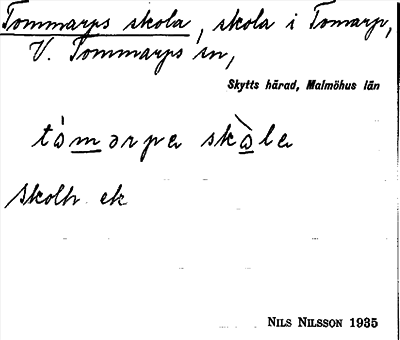 Tommarps skola, skola i Tomarp,
V. Tommarps sn,
Skytts härad, Malmöhus län
tòmərpa skàla
Skolh. ek
NILS NILSSON 1935